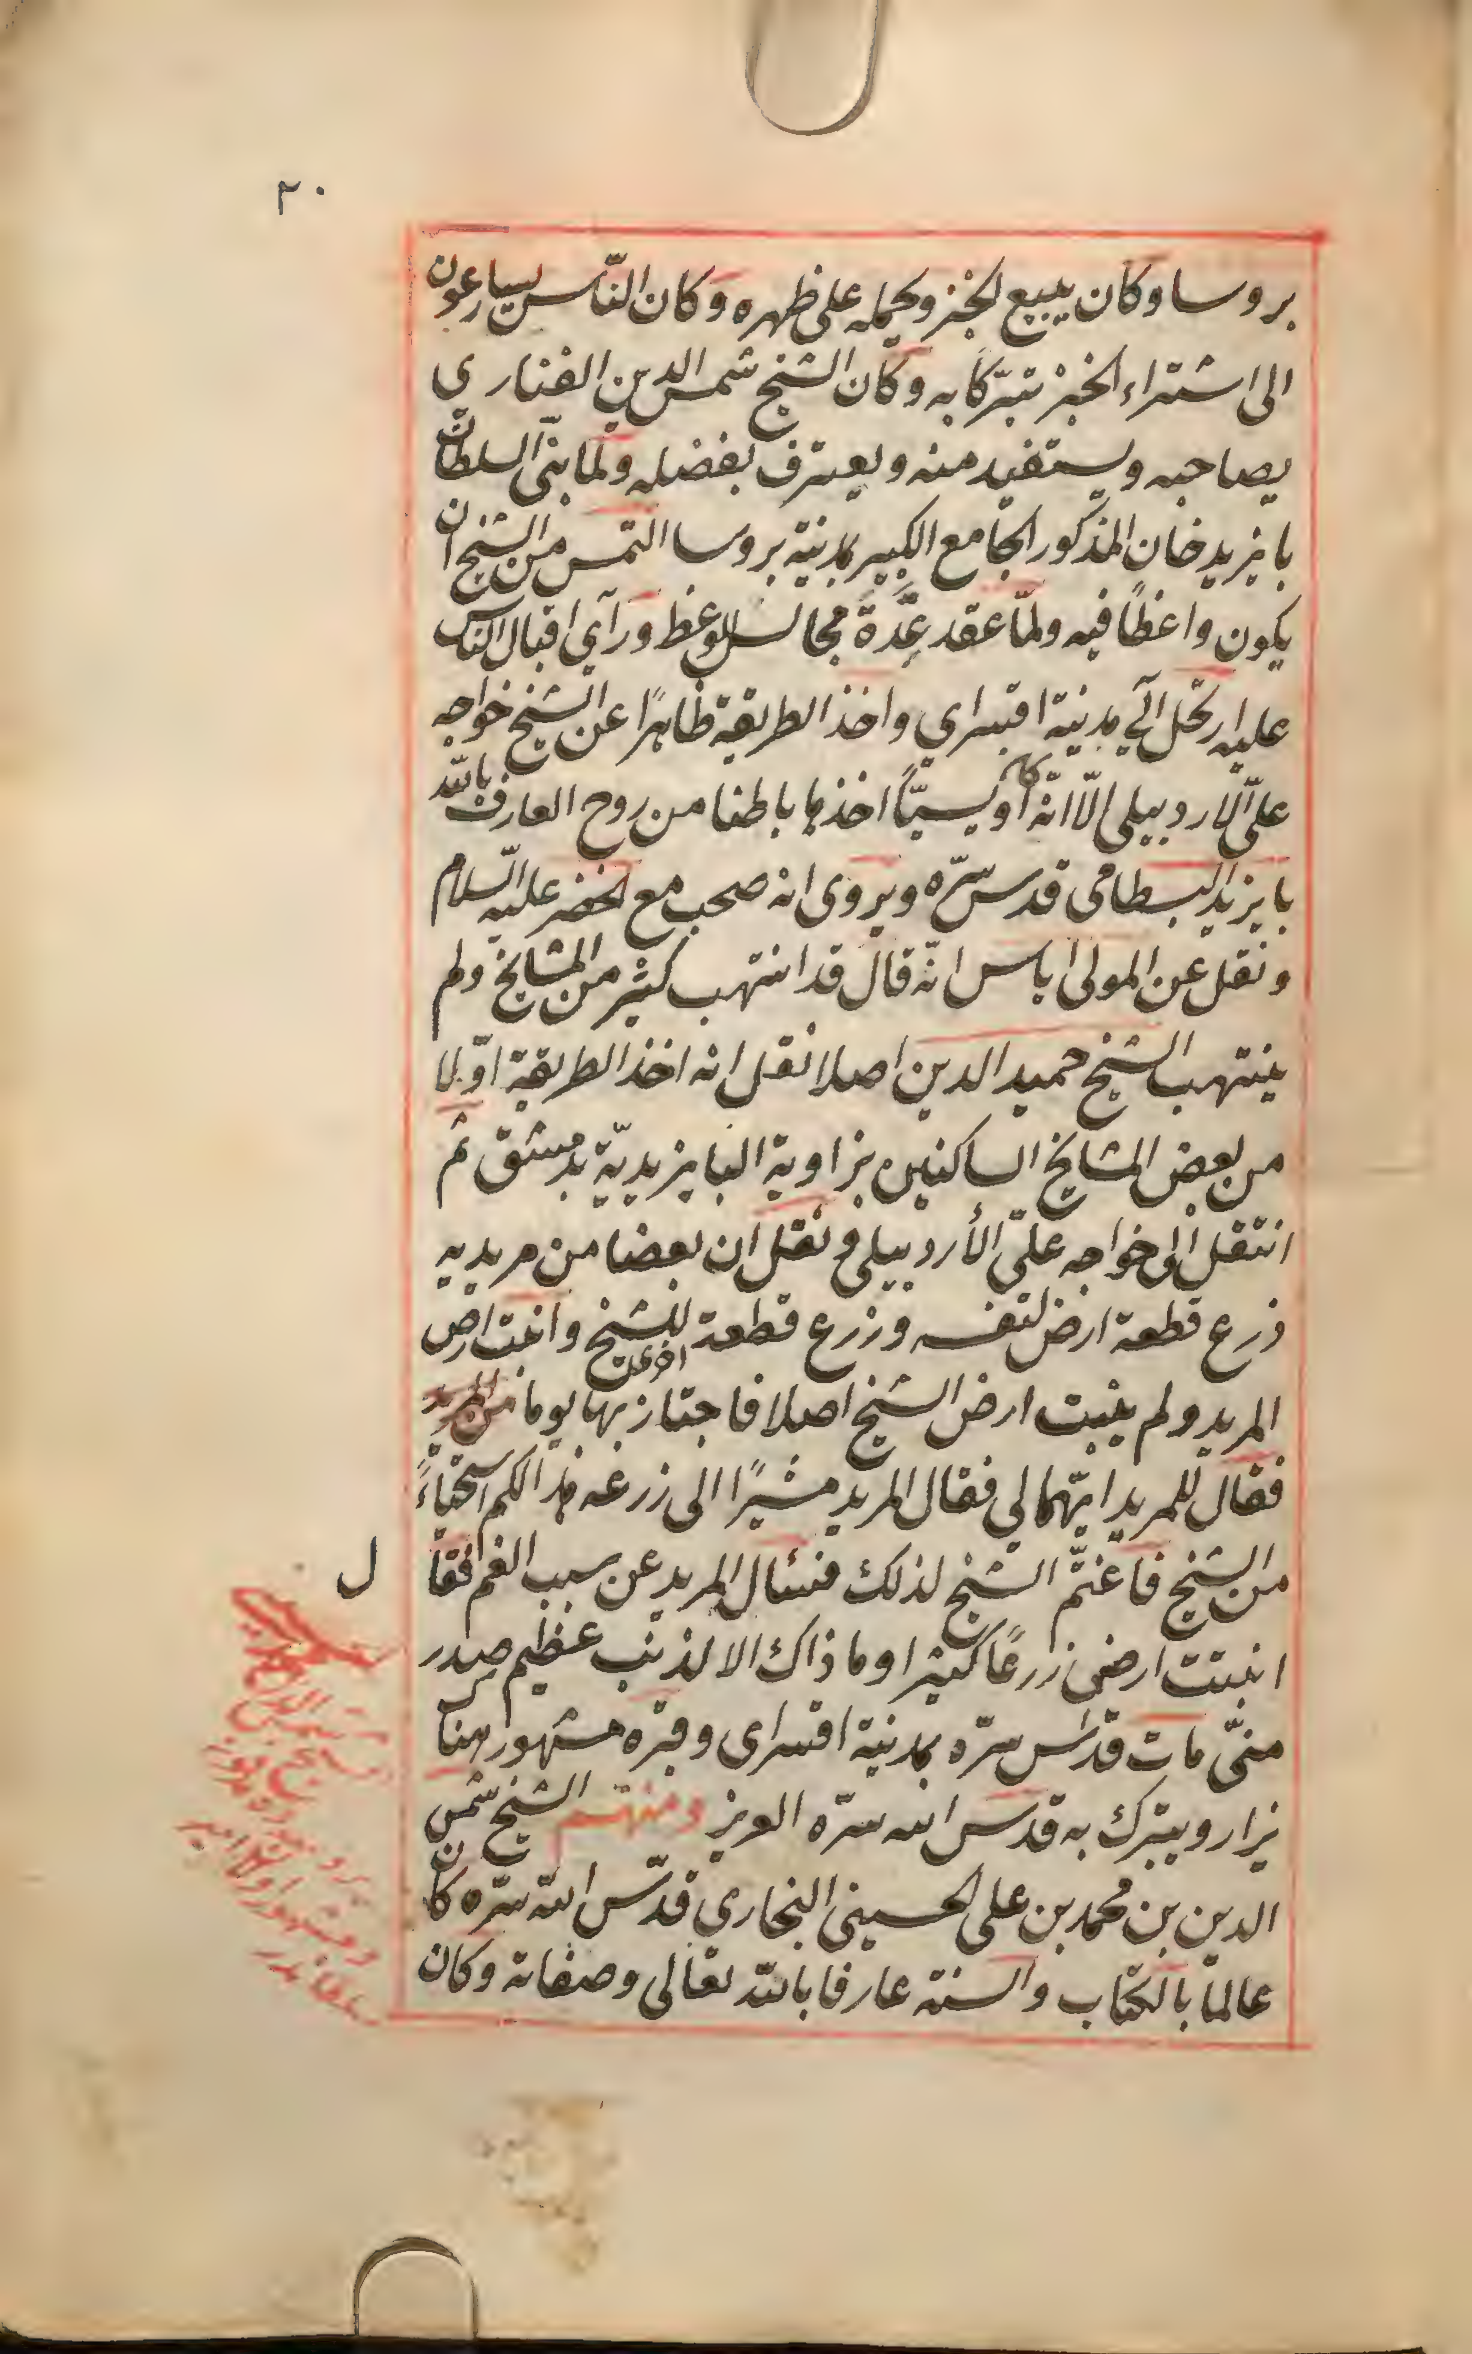 ٢٠
بروسا وكان يبيع الخبز ويحمله على ظهره وكان النّاس يسارعون
الى اشتراء الخبز تبرّكا به وكان الشيخ شمس الدين الفنارى
يصاحبه ويستفيد منه ويعترف بفضله ولما بنى السلطان
بايزيد خان المذكور الجامع الكبير بمدنية بروسا التمس من الشيخ ان
يكون واعظًا فيه ولمّا عقد عدّة مجالس للوعظ ورآى اقبال الناس
عليه ارتحل الى مدنية اقسراي واخذ الطريقة ظاهرًا عن الشيخ خواجه
علىّ الاردبيلى الّا انّه كان أويسيّاً اخذها باطنا من روح العارف بالله
بايزيد البسطامى قدس سرّه ويروى انه صحب مع الخضر عليه السّلام
ونقل عن المولى اياس انّه قال قد انتهب كثير من المشايخ ولم
ينتهب الشيخ حميد الدين اصلا نقل انه اخذ الطريقة اوّلا
من بعض المشايخ الساكنين بزاوية البايزيديّة بدمشق ثم
انتقل الى خواجه علىّ الأردبيلى ونقل ان بعضا من مريديه
زرع قطعة ارض لنفسه وزرع قطعة اخرى للشيخ وانبت ارض
المريد ولم ينبت ارض الشيخ اصلا فاجتاز بها يوما من المريد
فقال للمريد ايّهما لي فقال المريد مشيرًا الى زرعه هذا لكم استحياءً
من الشيخ فاغتمّ الشيخ لذلك فسئال المريد عن سبب الغم فقا
ل
انبتت ارضى زرعًا كثيرا وما ذاك الا لذنب عظيم صدر
منىّ مات قدّس سرّه بمدنية اقسراى وقبره مشهور هنا
يزار ويتبرك به قدّس الله سرّه العزيز ومنهم الشيخ شمس
الدين بن محمد بن على الحسينى البخاري قدّس الله سرّه كان
عالما بالكتاب والسنة عارفا بالله تعالى وصفاته وكان